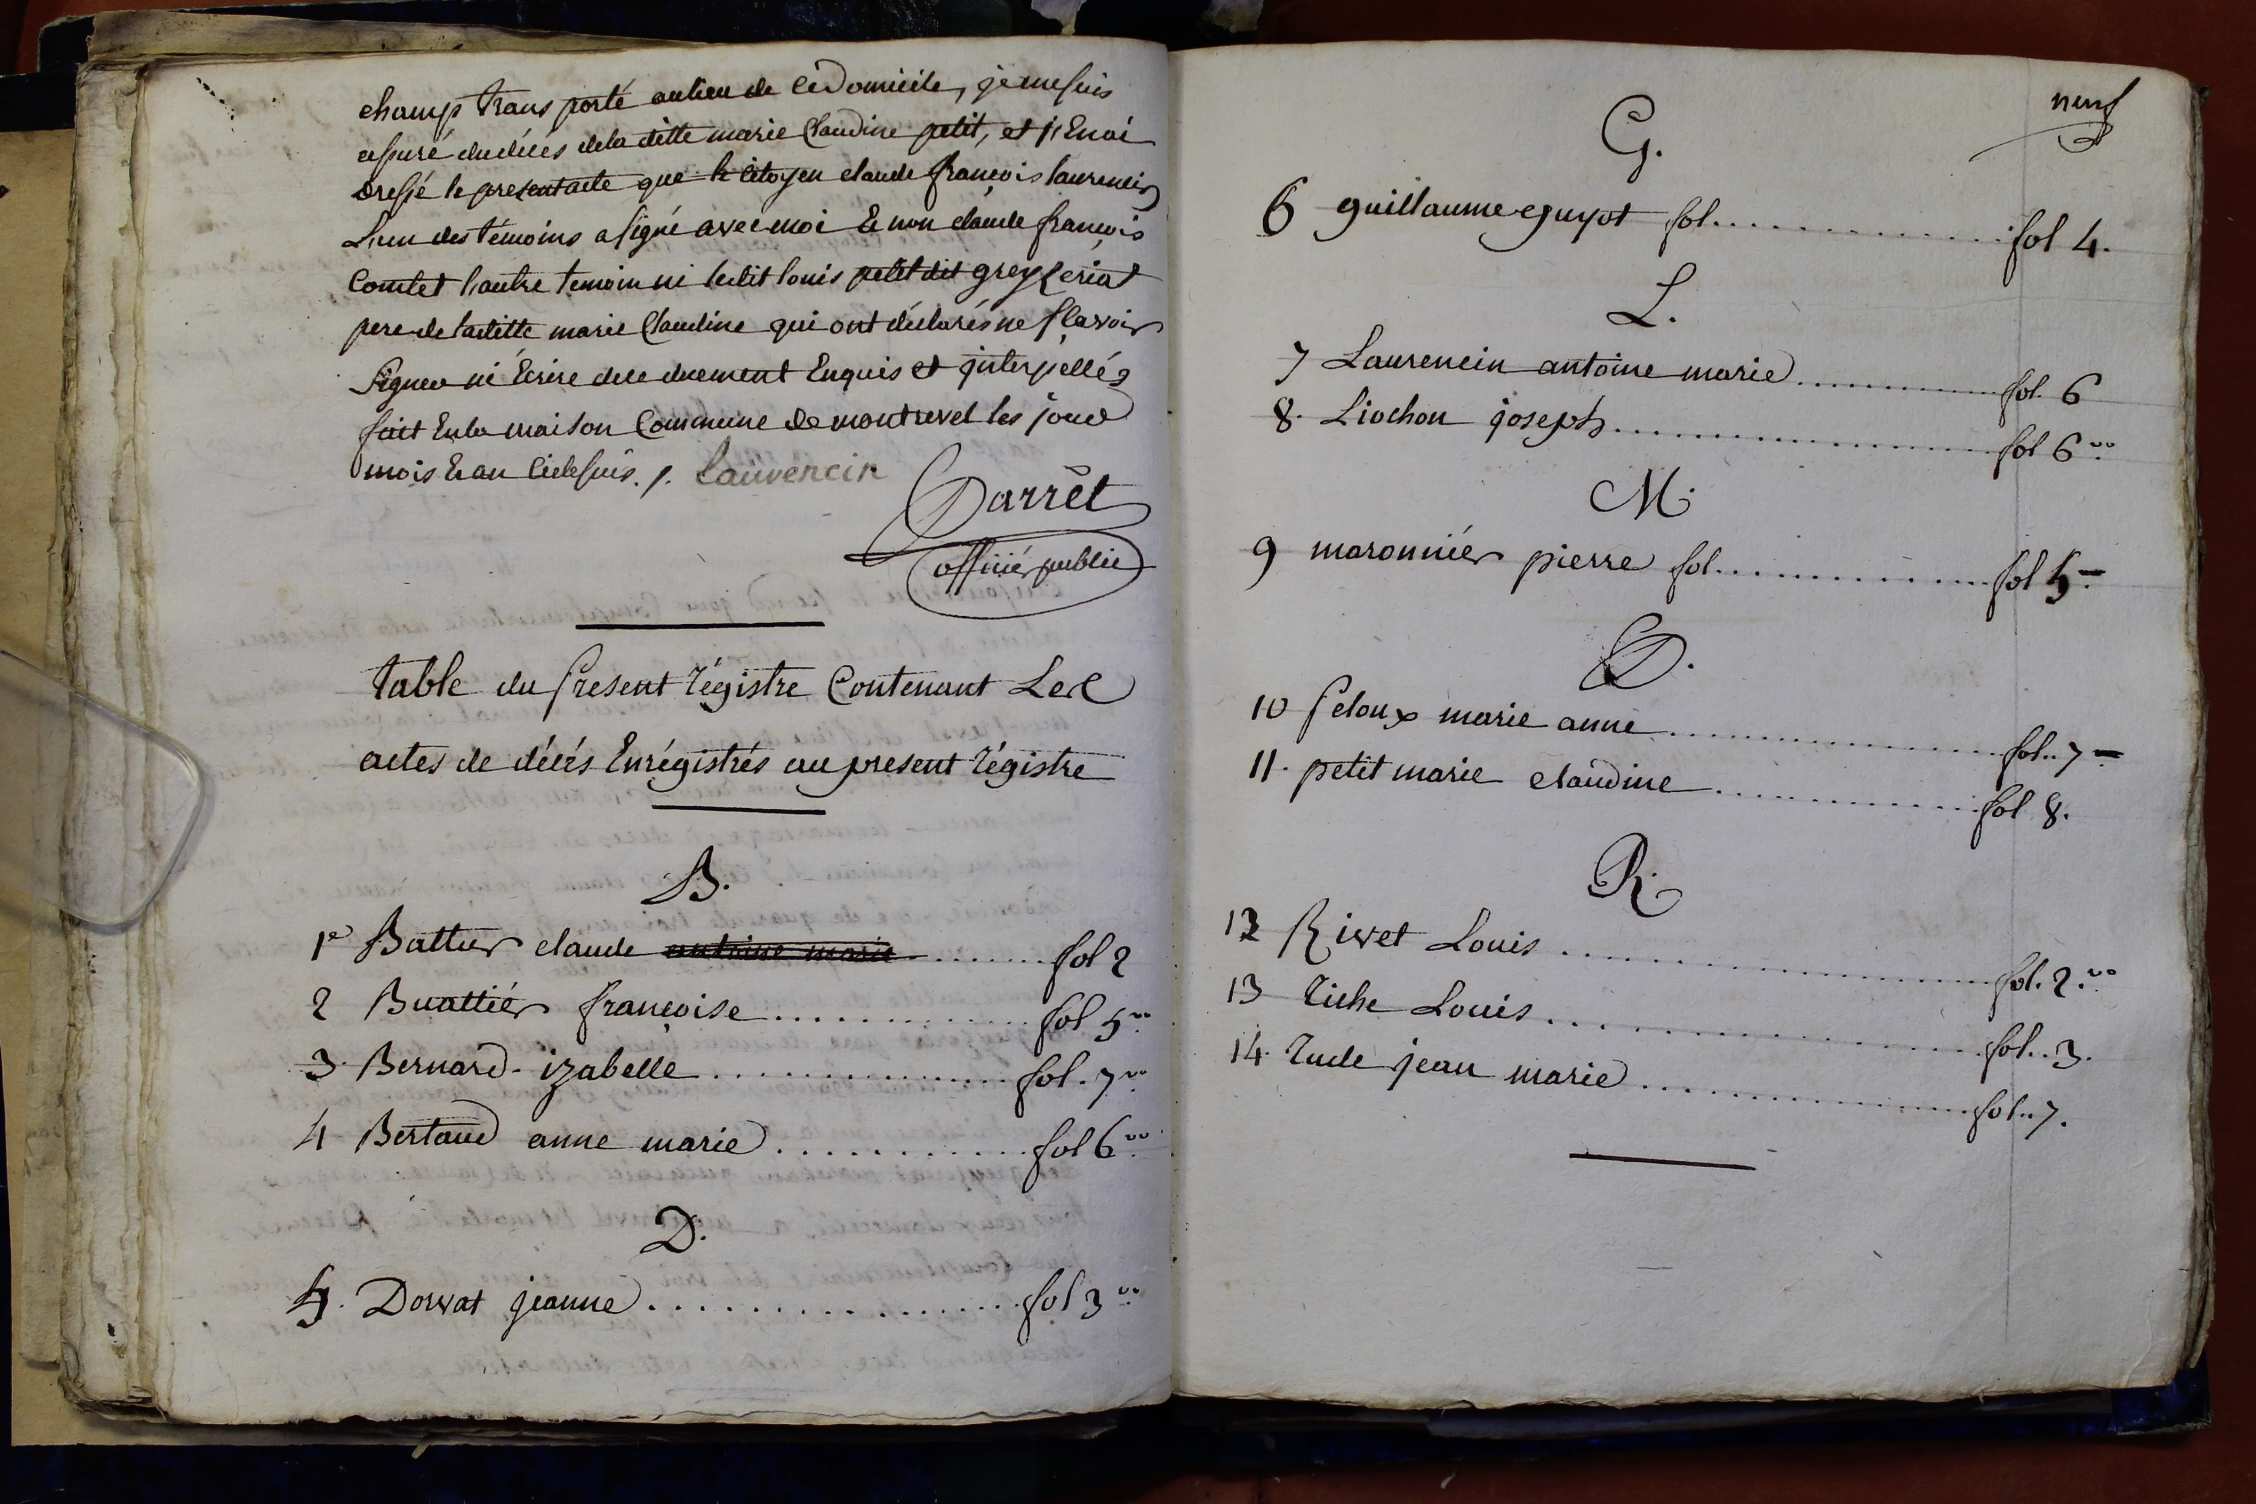 champ trans porté au lieu de ce Domicile, je me suis
assuré du décès de la ditte marie Claudine petit, et j'En ai
Dressé le present acte que le Citoyen claude françois laurencin
L'un des témoins a signé avec moi & non claude françois
Comtet l'autre temoin ni ledit louis petit dit greyzeriat
pere de laditte marie Claudine qui ont déclarés ne sçavoir
signer ni Ecrire de ce duement Enquis et interpellés
fait En la maison Commune de montrevel les jour
mois & an Cidessus. /. laurencin
Darrêt
officier public
table du present régistre Contenant Les
actes de décès Enrégistrés au present régistre
B.
1e Battur claude antoine marie ........ fol 2
2 Buattier françoise ........ fol 5 vo
3. Bernard izabelle ........ fol. 7 vo
4 Bertaud anne marie ........ fol 6 vo
D.
5. Dorvat jeanne ........ fol 3 vo
neuf
G.
6 guillaume guyot fol ........ fol 4.
L.
7 Laurencin antoine marie ........ fol. 6
8. Liochon joseph ........ fol 6 vo
M.
9 maronnier pierre fol ........ fol 5
P.
10 peloux marie anne ........ fol.. 7
11. petit marie claudine ........ fol 8.
R.
12 Rivet Louis ........ fol. 2. vo
13 riche Louis ........ fol.. 3.
14. rude jean marie ........ fol.. 7.